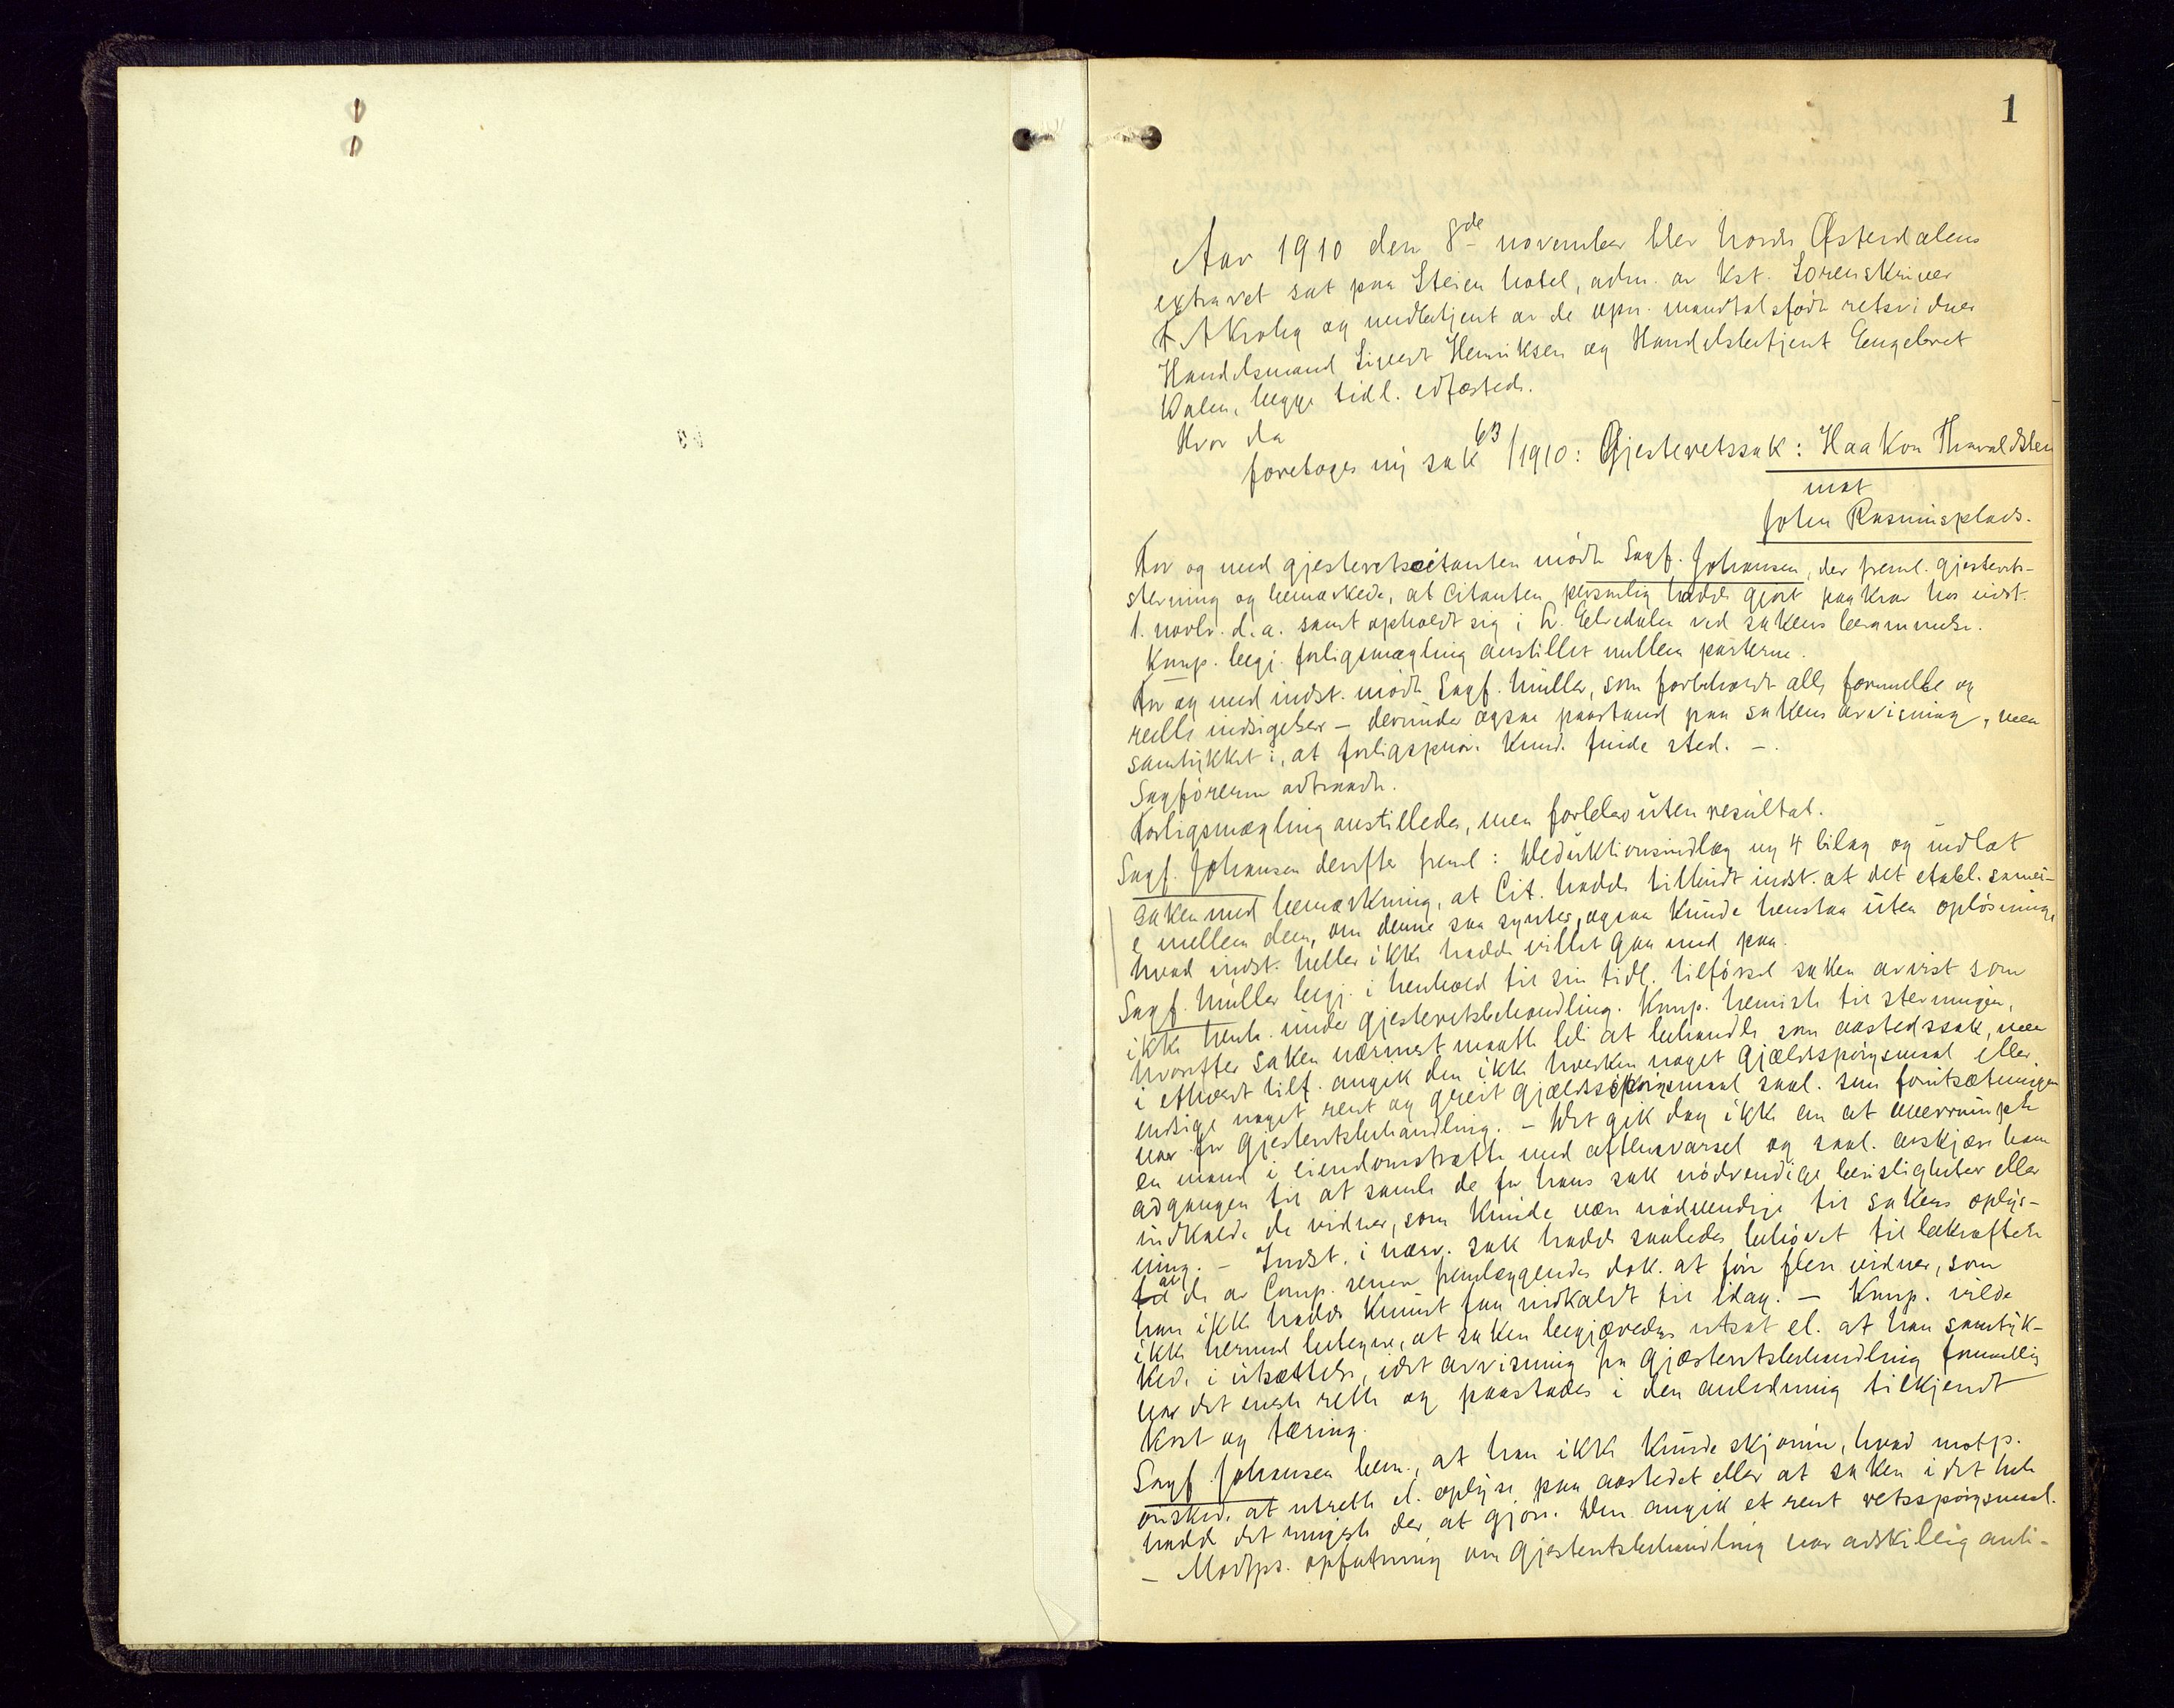 1
Aar 1910 den 8de november blev nordr. Østerdalens
extraret sat paa Steien hotel, adm. av kst. Sorenskriver
F. A. Krohg og medbetjent av de opn. mandtalsførte retsvidner
Handelsmand Sivert Henriksen og Handelsbetjent Engebret
Dalen, begge tidl. edfæstede.
Hvor da
foretoges ny sak 63/1910: Gjesteretssak: Haakon Thorvaldsen
mot
John Rasmusplads.
For og med gjesteretscitanten mødte Sagf. Johansen, der freml. gjesterets-
stevning og bemærkede, at Citanten personlig hadde gjort paakrav hos indst.
1. novbr. d.a. samt opholdt sig i L. Elvedalen ved sakens berammelse.
Komp. begj. forligsmægling anstillet mellem parterne.
For og med indst. mødte Sagf. Müller, som forbeholdt alle formelle og
reelle indsigelser – derunder ogsaa paastand paa sakens avvisning, men
samtykket i, at forligsprøve kunde finde sted. –.
Sagførerne avtraadte.
Forligsmægling anstilledes, men forblev uten resultat.
Sagf. Johansen derefter freml: Deduktionsindlæg og 4 bilag og indlot
saken med bemærkning, at Cit. hadde tilbudt indst. at det etabl. samei-
e mellem dem, om denne saa syntes, ogsaa kunde henstaa uten opløsning,
hvad indst. heller ikke hadde villet gaa med paa.
Sagf. Müller begj. i henhold til sin tidl. tilførsel saken avvist som
ikke hørende under gjesteretsbehandling. Komp. henviste til stevningen,
hvorefter saken nærmest maatte bli at behandle som aastedssak, men
i ethvert tilf. angik den ikke hverken noget gjældsspørgsmaal eller
endsige noget rent og greit gjældsspørgsmaal saal. som forutsætningen
var for gjesteretsbehandling. – Det gik dog ikke an at overrumple
en mand i eiendomstrætte med aftensvarsel og saal. avskjære ham
adgangen til at samle de for hans sak nødvendige bevisligheter eller
indkalde de vidner, som kunde være nødvendige til sakens oplys-
ning. – Indst. i nærv. sak hadde saaledes behøvet til bekræftelse
av de av Comp. senere fremlæggendes dok. at føre flere vidner, som
han ikke hadde kunnet faa indkaldt til idag. – Komp. vilde
ikke hermed betegne, at saken begjæredes utsat el. at han samtyk-
kede i utsættelse, idet avvisning fra gjæsteretsbehandling formentlig
var det eneste rette og paastodes i den anledning tilkjendt
kost og tæring.
Sagf. Johansen bem., at han ikke kunde skjønne, hvad motp.
ønskede at utrette el. oplyse paa aastedet eller at saken i det hele
hadde det ringeste der at gjøre. Den angik et rent retsspørgsmaal.
– Modps. opfatning om gjesteretsbehandling var adskillig anti-